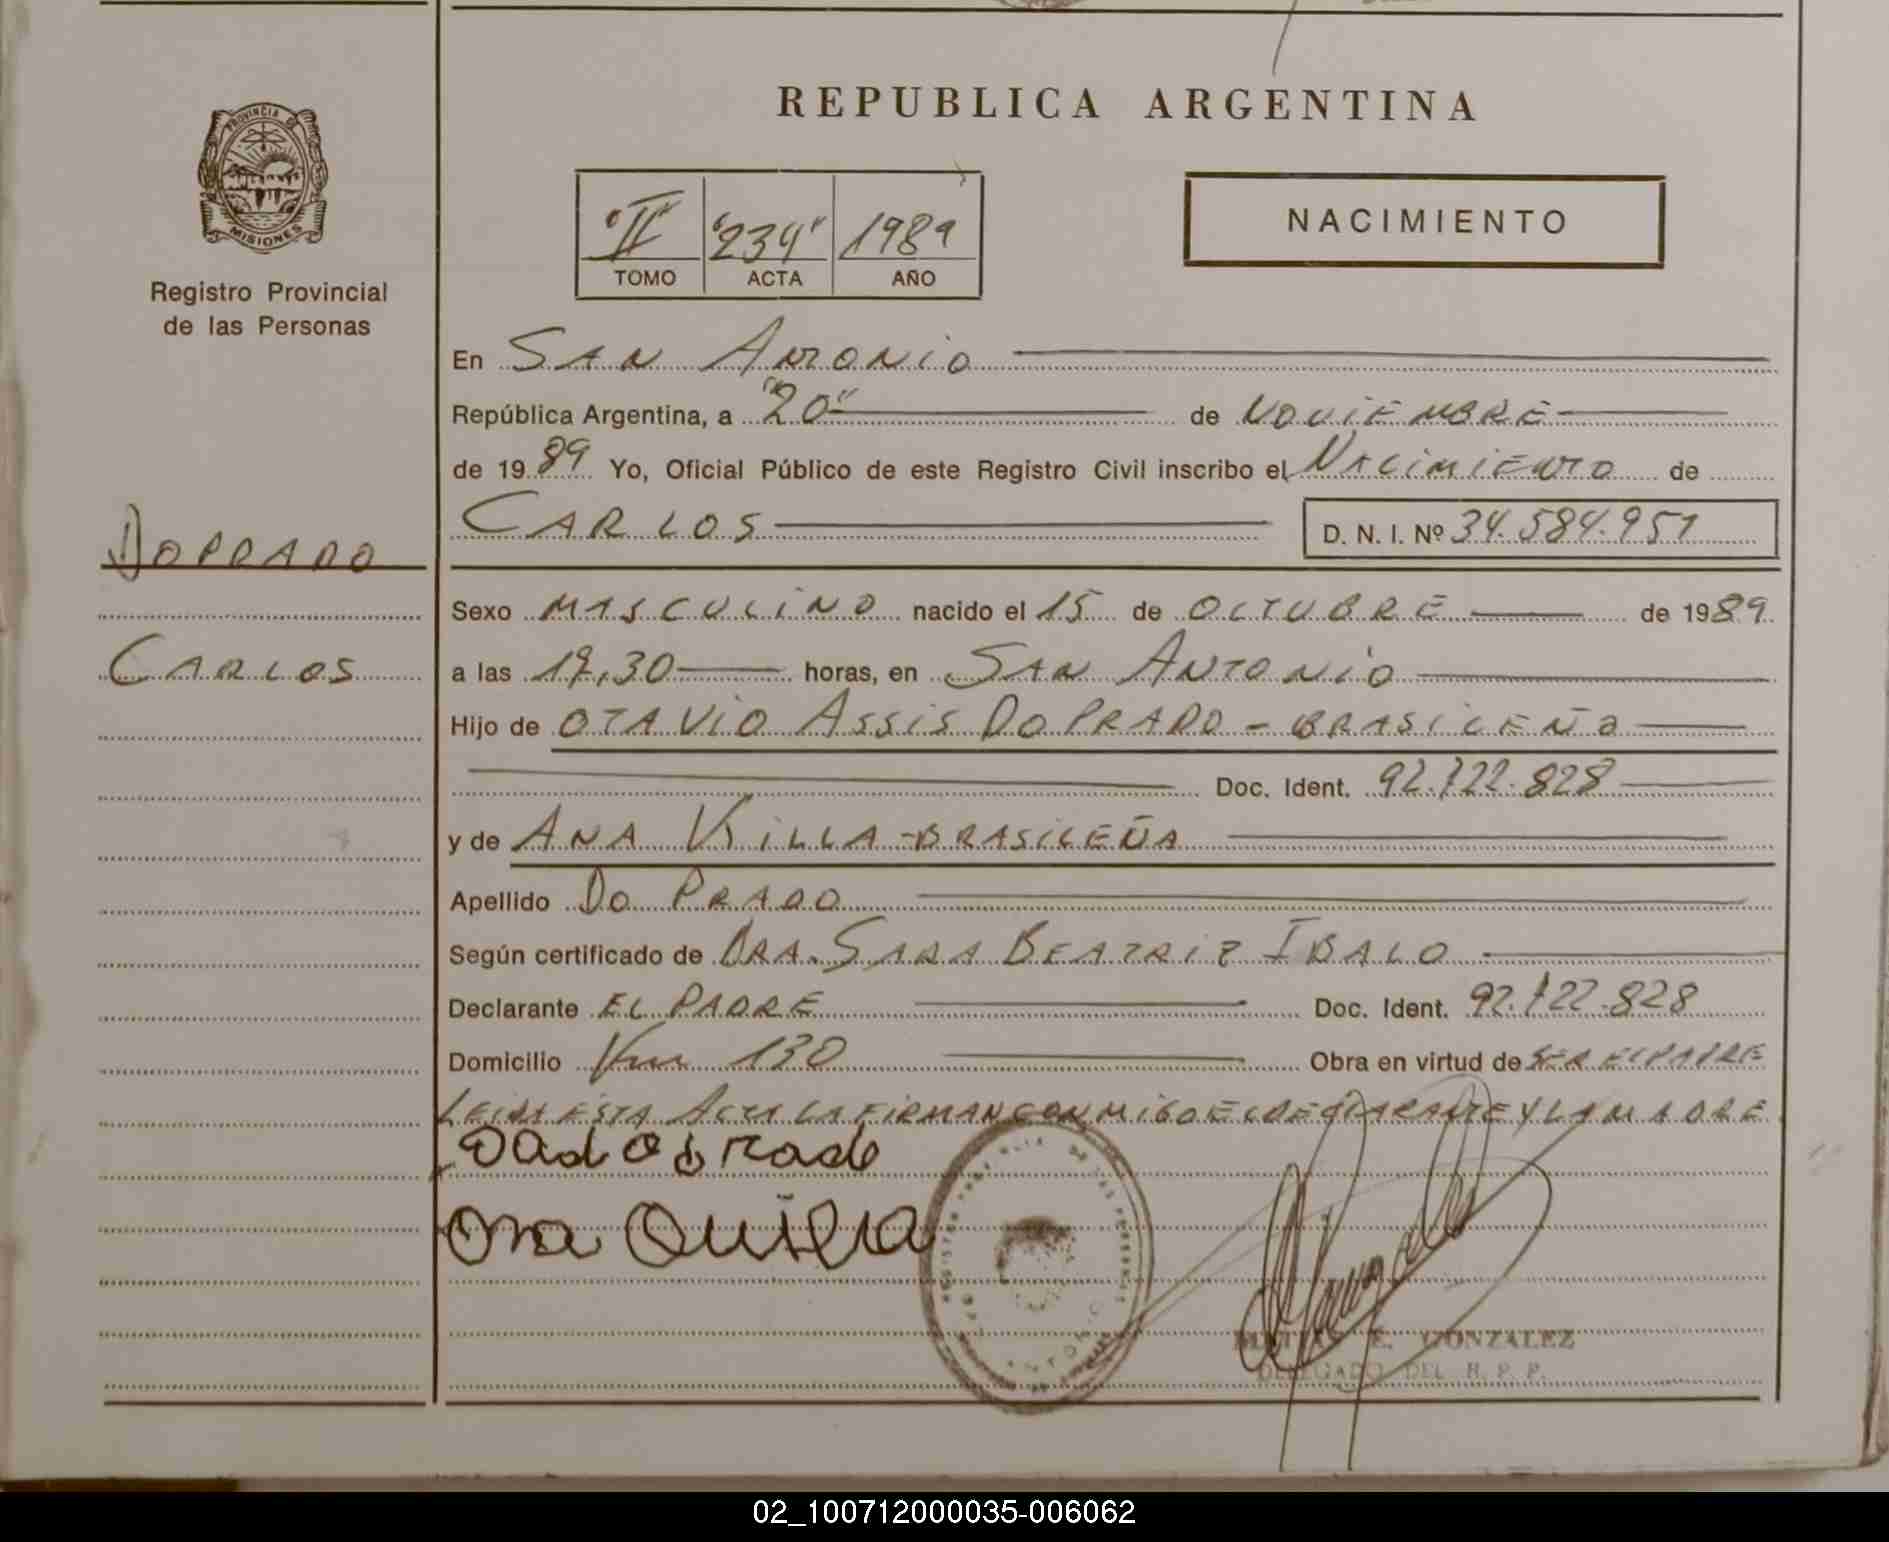 REPUBLICA ARGENTINA
PROVINCIA DE
MISIONES
Registro Provincial
de las Personas
"II" "234" 1989
TOMO ACTA AÑO
NACIMIENTO
En San Antonio
República Argentina, a "20" de Noviembre
de 1989 Yo, Oficial Público de este Registro Civil inscribo el Nacimiento de
Carlos D. N. I. Nº 34.584.951
Do Prado
Carlos
Sexo Masculino nacido el 15 de Octubre de 1989
a las 17,30 horas, en San Antonio
Hijo de Otavio Assis Do Prado - Brasileño
Doc. Ident. 92.122.828
y de Ana Killa - Brasileña
Apellido Do Prado
Según certificado de Dra. Sara Beatriz Ibalo
Declarante El Padre Doc. Ident. 92.122.828
Domicilio Km 130 Obra en virtud de ser el padre
Leida esta Acta la firman conmigo el declarante y la madre
MATIAS E. GONZALEZ
DELEGADO DEL R. P. P.
02_100712000035-006062